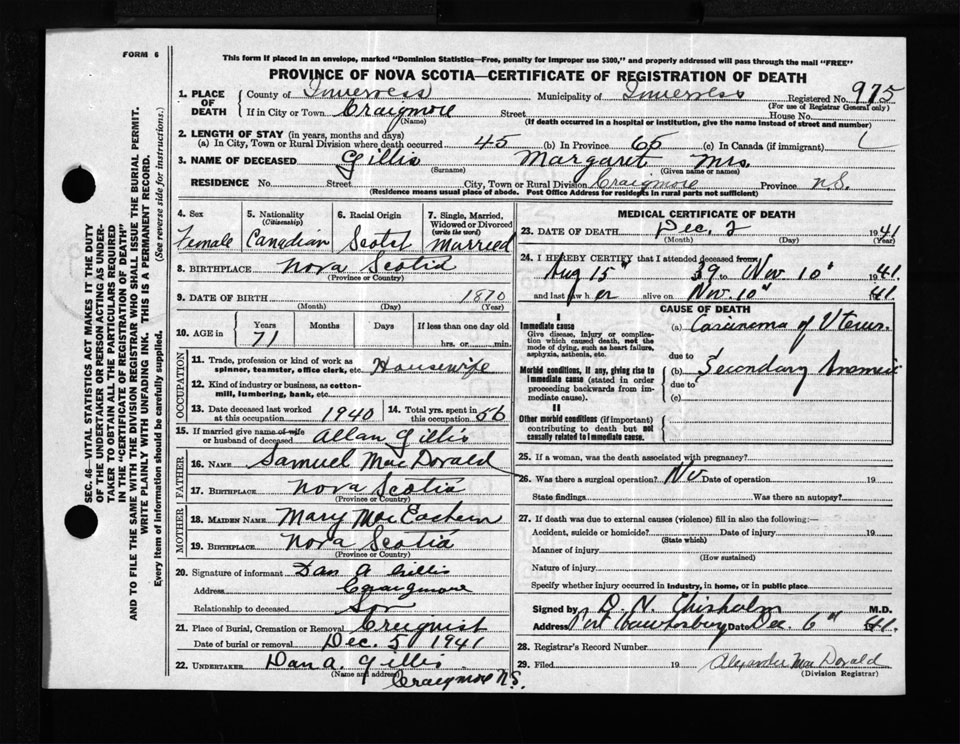 FORM 6
This form if placed in an envelope, marked "Dominion Statistics—Free, penalty for improper use $300," and properly addressed will pass through the mail "FREE"
PROVINCE OF NOVA SCOTIA—CERTIFICATE OF REGISTRATION OF DEATH
SEC. 46—VITAL STATISTICS ACT MAKES IT THE DUTY
OF THE UNDERTAKER OR PERSON ACTING AS UNDER-
TAKER TO OBTAIN ALL THE PARTICULARS REQUIRED
IN THE "CERTIFICATE OF REGISTRATION OF DEATH"
AND TO FILE THE SAME WITH THE DIVISION REGISTRAR WHO SHALL ISSUE THE BURIAL PERMIT.
WRITE PLAINLY WITH UNFADING INK. THIS IS A PERMANENT RECORD.
Every item of information should be carefully supplied. (See reverse side for instructions.)
1. PLACE OF DEATH County of Inverness Municipality of Inverness Registered No. 975
(For use of Registrar General only)
If in City or Town Craigmore Street House No.
(Name) (If death occurred in a hospital or institution, give the name instead of street and number)
2. LENGTH OF STAY (in years, months and days)
(a) In City, Town or Rural Division where death occurred 45 (b) In Province 65 (c) In Canada (if immigrant)
3. NAME OF DECEASED Gillis Margaret Mrs
(Surname) (Given name or names)
RESIDENCE No. Street City, Town or Rural Division Craigmore Province N.S.
(Residence means usual place of abode. Post Office Address for residents in rural parts not sufficient)
4. Sex Female
5. Nationality (Citizenship) Canadian
6. Racial Origin Scotch
7. Single, Married, Widowed or Divorced (write the word) Married
8. BIRTHPLACE Nova Scotia
(Province or Country)
9. DATE OF BIRTH 1870
(Month) (Day) (Year)
10. AGE in Years 71 Months Days If less than one day old
hrs. or min.
OCCUPATION
11. Trade, profession or kind of work as spinner, teamster, office clerk, etc. Housewife
12. Kind of industry or business, as cotton-mill, lumbering, bank, etc.
13. Date deceased last worked at this occupation 1940 14. Total yrs. spent in this occupation 56
15. If married give name of wife or husband of deceased Allan Gillis
FATHER
16. NAME Samuel MacDonald
17. BIRTHPLACE Nova Scotia
(Province or Country)
MOTHER
18. MAIDEN NAME Mary MacEachern
19. BIRTHPLACE Nova Scotia
(Province or Country)
20. Signature of informant Dan A Gillis
Address Craigmore
Relationship to deceased Son
21. Place of Burial, Cremation or Removal Creignish
Date of burial or removal Dec. 5 1941
22. UNDERTAKER Dan A. Gillis
(Name and address)
Craigmore N.S.
MEDICAL CERTIFICATE OF DEATH
23. DATE OF DEATH Dec. 2 1941
(Month) (Day) (Year)
24. I HEREBY CERTIFY that I attended deceased from
Aug 15" 39 to Nov. 10" 1941
and last saw her alive on Nov. 10" 41.
CAUSE OF DEATH
I
Immediate cause (a) Carcinoma of Uterus.
Give disease, injury or complication which caused death, not the mode of dying, such as heart failure, asphyxia, asthenia, etc.
due to
Morbid conditions, if any, giving rise to immediate cause (stated in order proceeding backwards from immediate cause). (b) Secondary Anemia
due to
(c)
II
Other morbid conditions (if important) contributing to death but not causally related to immediate cause.
25. If a woman, was the death associated with pregnancy?
26. Was there a surgical operation? No Date of operation 19
State findings Was there an autopsy?
27. If death was due to external causes (violence) fill in also the following:—
Accident, suicide or homicide? Date of injury 19
(State which)
Manner of injury
(How sustained)
Nature of injury
Specify whether injury occurred in industry, in home, or in public place
Signed by D. N. Chisholm M.D.
Address Port Hawkesbury Date Dec. 6" 41.
28. Registrar's Record Number
29. Filed 19 Alexander MacDonald
(Division Registrar)